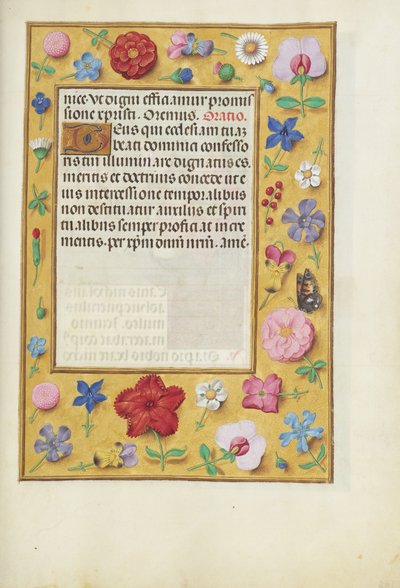 nice. Vt digni efficiamur promis
sione xpristi. Oremus. Oratio.
Deus qui ecclesiam tuaz
beati dominici confesso
ris tui illuminare dignatus es
meritis et doctrinis concede vt e
ius intercessione temporalibus
non destituatur auxiliis et spiri
tualibus semper proficiat in cre
mentis. per xpm dnum nrm. ame.